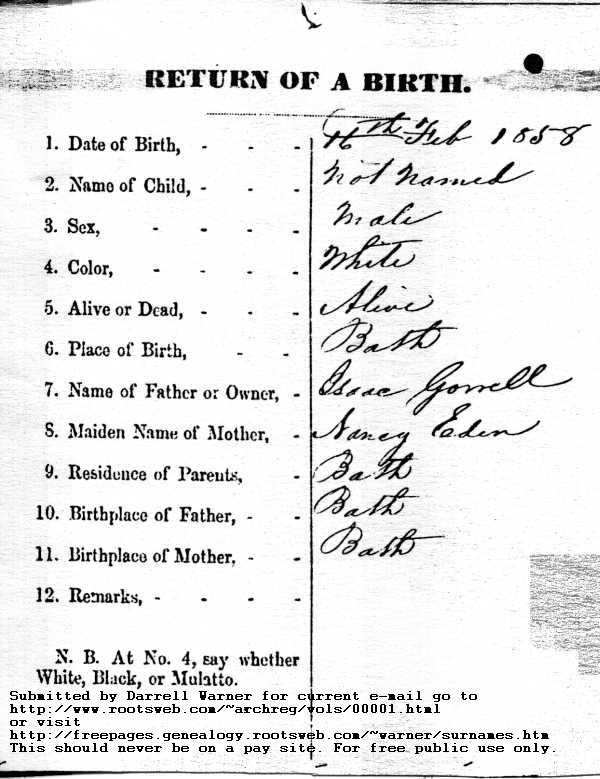 RETURN OF A BIRTH.
1. Date of Birth, - - - 16th Feb 1858
2. Name of Child, - - - Not Named
3. Sex, - - - - Male
4. Color, - - - - White
5. Alive or Dead, - - - Alive
6. Place of Birth, - - Bath
7. Name of Father or Owner, - Isaac Gorrell
8. Maiden Name of Mother, - Nancy Eden
9. Residence of Parents, - Bath
10. Birthplace of Father, - - Bath
11. Birthplace of Mother, - - Bath
12. Remarks, - - - -
N. B. At No. 4, say whether
White, Black, or Mulatto.
Submitted by Darrell Warner for current e-mail go to
http://www.rootsweb.com/~archreg/vols/00001.html
or visit
http://freepages.genealogy.rootsweb.com/~warner/surnames.htm
This should never be on a pay site. For free public use only.